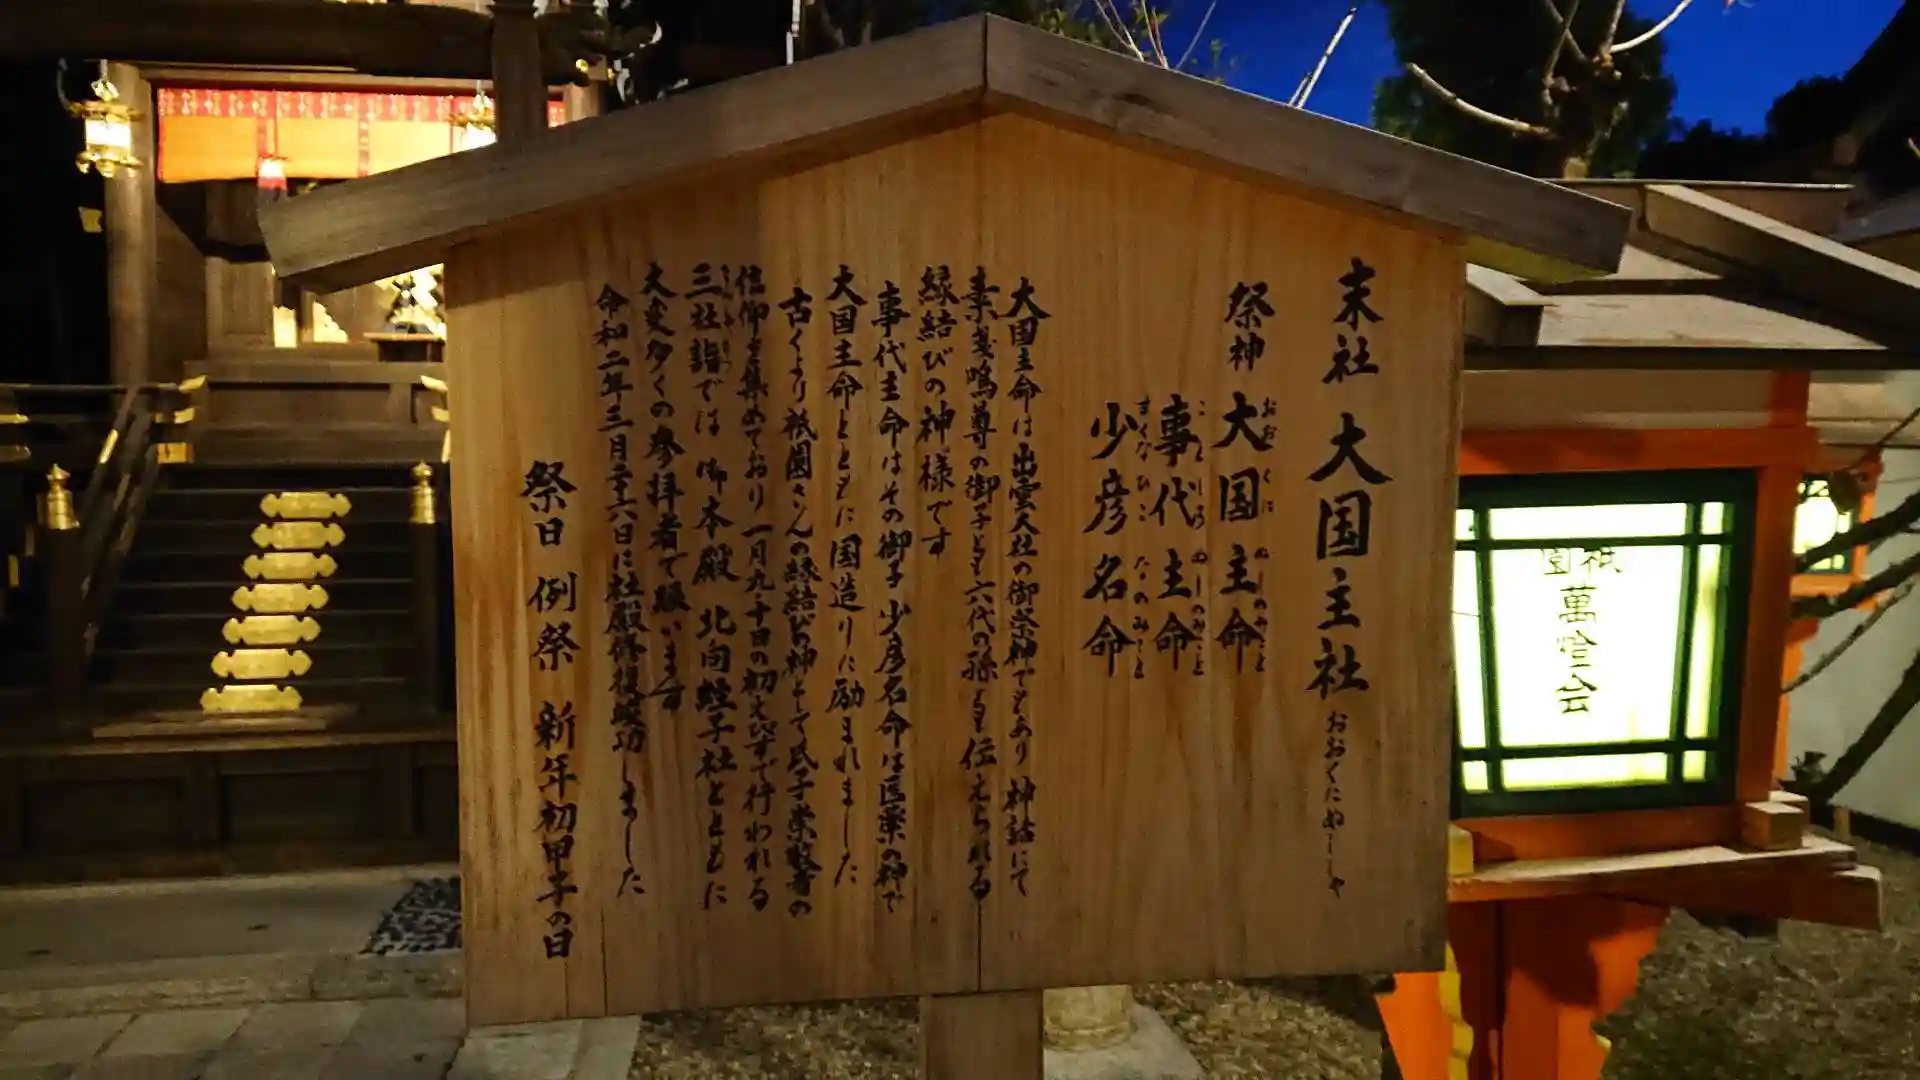 末社 大国主社 おおくにぬしや
祭神 大国主命
おおくに ぬしのみこと
事代主命
ことしろ ぬしのみこと
少彦名命
すくなひこ なのみこと
大国主命は出雲大社の御祭神でもあり 神話にて
素戔嗚尊の御子とも六代の孫とも伝えられる
縁結びの神様です
事代主命はその御子 少彦名命は医薬の神で
大国主命とともに国造りに励まれました
古くより祇園さんの縁結びの神として氏子崇敬者の
信仰を集めており 一月九・十日の初えびすで行われる
三社詣では 御本殿 北向蛭子社とともに
大変多くの参拝者で賑います
令和二年三月二十六日に社殿修復竣功しました
祭日 例祭 新年初甲子の日
祇園
萬燈会